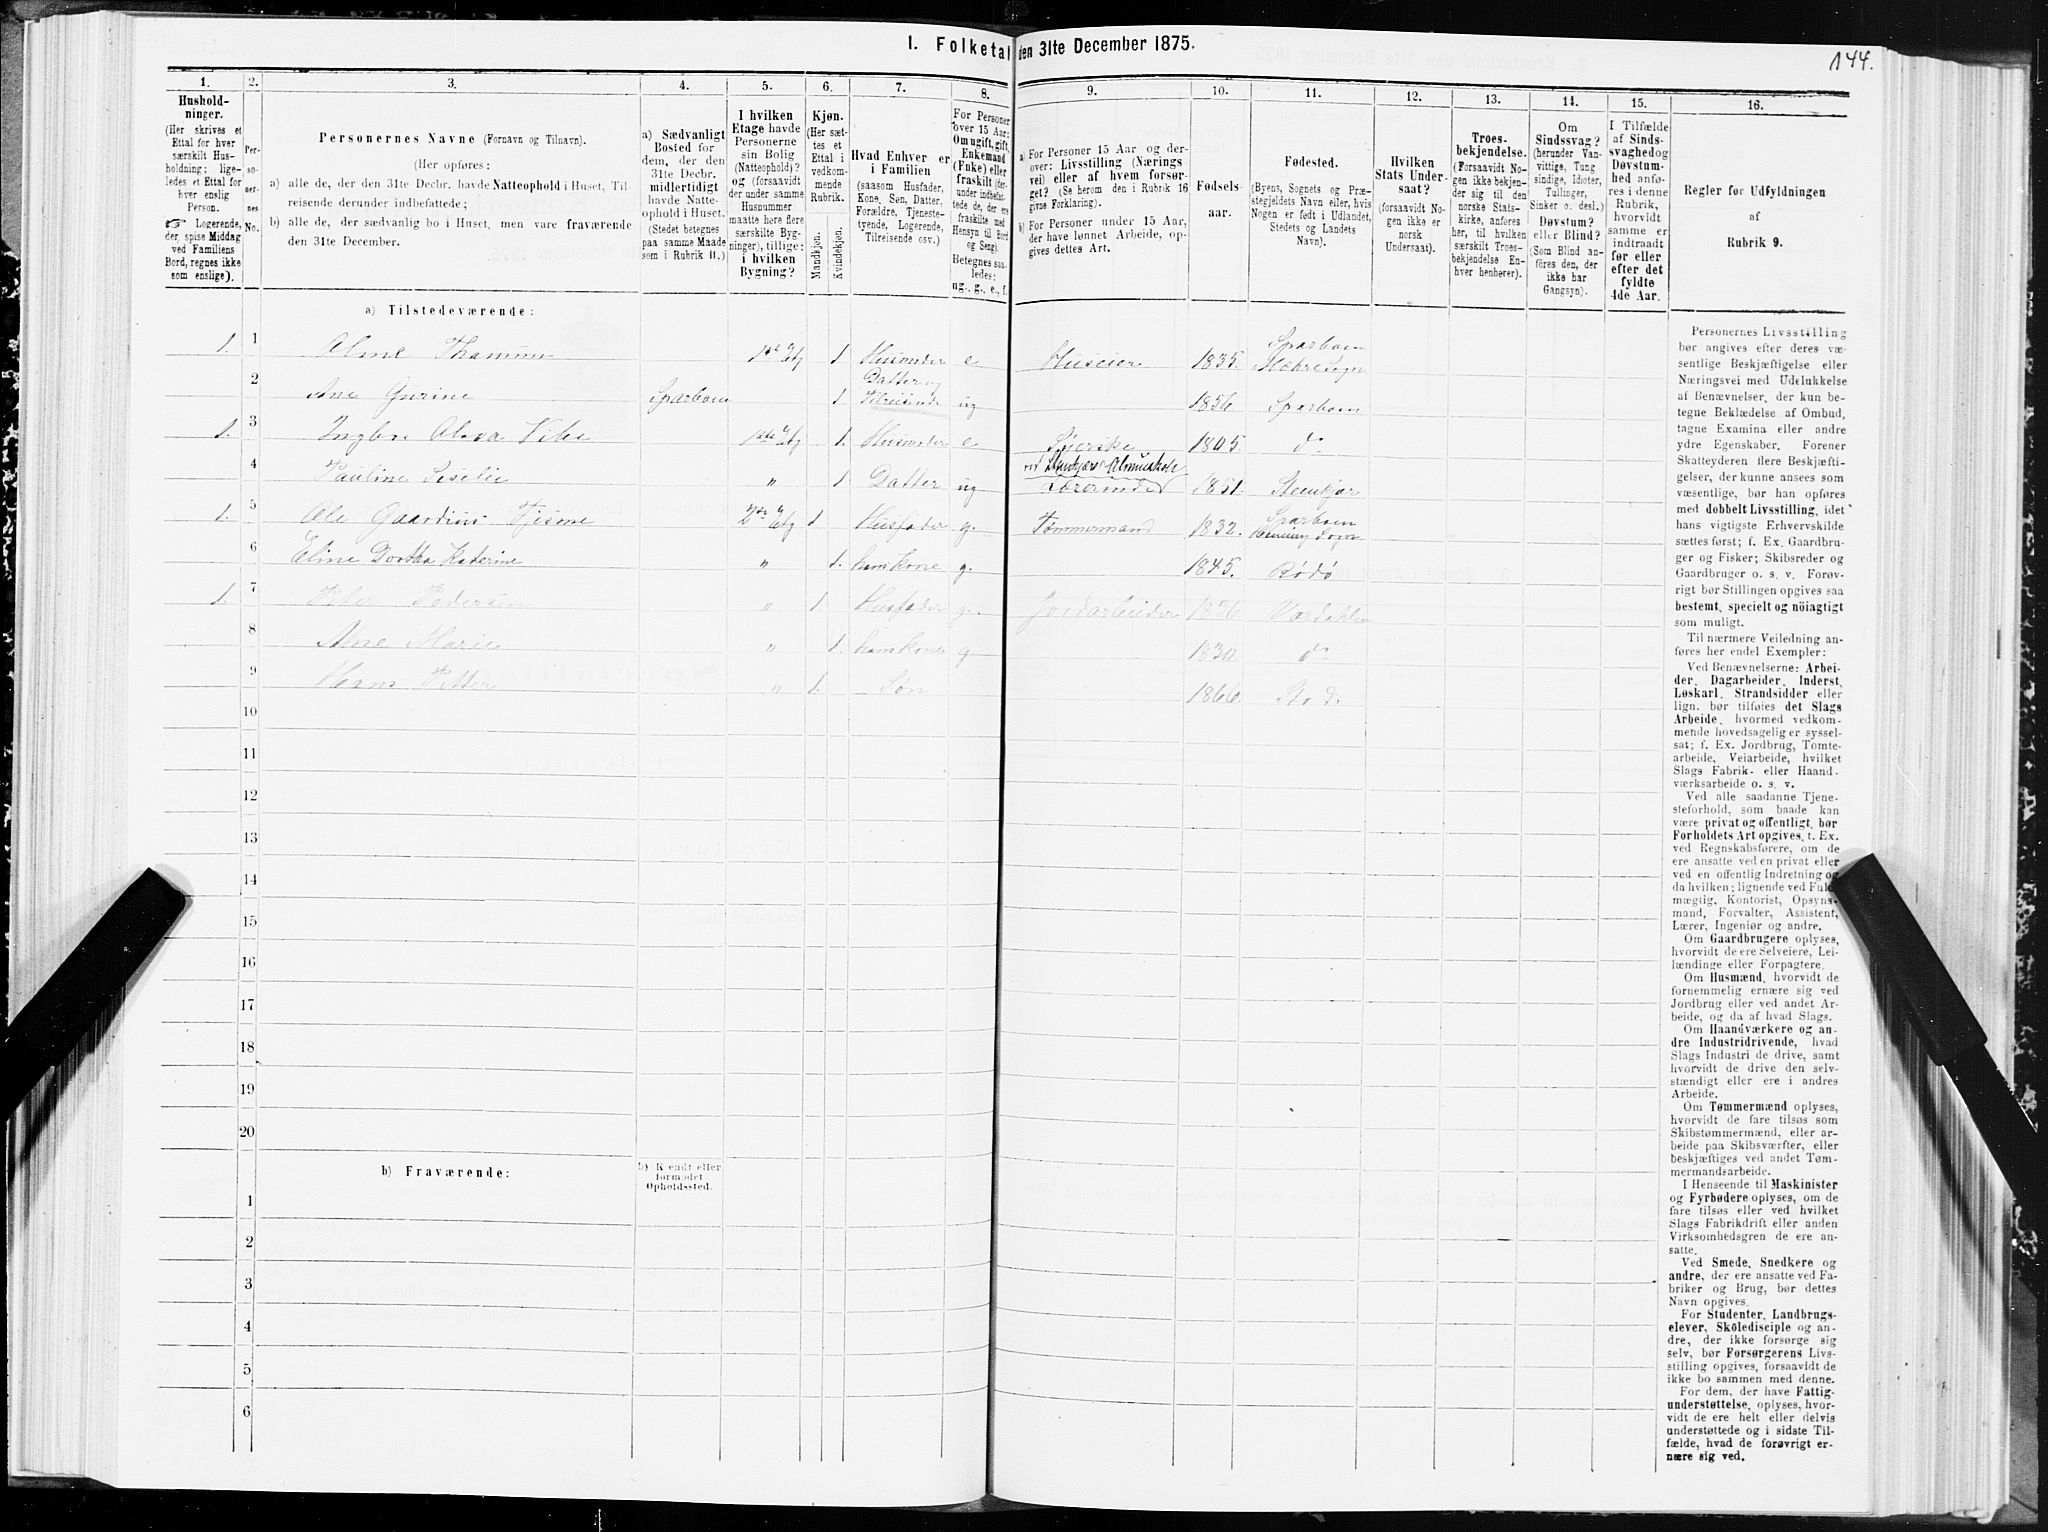 144.
1. Folketal den 31te December 1875.
1. 2. 3. 4. 5. 6. 7. 8. 9. 10. 11. 12. 13. 14. 15. 16.
Hushold-
ninger.
(Her skrives et
Ettal for hver
særskilt Hus-
holdning; lige-
ledes et Ettal for
hver enslig
Person.
☞ Logerende,
der, spise Middag
ved Familiens
Bord, regnes ikke
som enslige).
Per-
so-
ner-
nes
No.
Personernes Navne (Fornavn og Tilnavn).
(Her opføres:
a) alle de, der den 31te Decbr. havde Natteophold i Huset, Til
reisende derunder indbefattede;
b) alle de, der sædvanlig bo i Huset, men vare fraværende
den 31te December.
a) Sædvanligt
Bosted for
dem, der den
31te Decbr.
midlertidigt
havde Natte-
ophold i Huset.
(Stedet betegnes
paa samme Maade
som i Rubrik 11.)
I hvilken
Etage havde
Personerne
sin Bolig
(Natteophold)?
og (forsaavidt
der under samme
Husnummer
maatte høre flere
særskilte Byg-
ninger), tillige:
i hvilken
Bygning?
Kjøn.
(Her sæt-
tes et
Ettal i
vedkom-
mende
Rubrik.
Mandkjøn.
Kvindekjøn.
Hvad Enhver er
i Familien
(saasom Husfader,
Kone, Søn, Datter,
Forældre, Tjeneste-
tyende, Logerende,
Tilreisende osv.)
For Personer
over 15 Aar:
Om ugift, gift,
Enkemand
(Enke) eller
fraskilt (der-
under indbefat-
tede de, der ere
fraskilte med
Hensyn til Bord
og Seng).
Betegnes saa-
ledes:
ug., g., e., f.
a) For Personer 15 Aar og der-
over: Livsstilling (Nærings
vei) eller af hvem forsør-
get? (Se herom den i Rubrik 16
givne Forklaring).
b) For Personer under 15 Aar,
der have lønnet Arbeide, op-
gives dettes Art.
Fødsels-
aar.
Fødested.
(Byens, Sognets og Præ-
stegjeldets Navn eller, hvis
Nogen er født i Udlandet,
Stedets og Landets
Navn).
Hvilken
Stats Under-
saat?
(forsaavidt No-
gen ikke er
norsk
Undersaat).
Troes-
bekjendelse.
(Forsaavidt No-
gen ikke bekjen-
der sig til den
norske Stats-
kirke, anføres
her, til hvilken
særskilt Troes-
bekjendelse En-
hver henhører).
Om
Sindssvag?
(herunder Van-
vittige, Tung-
sindige, Idioter,
Tullinger,
Sinker o. desl.)
Døvstum?
eller Blind?
(Som Blind an-
føres den, der
ikke har
Gangsyn).
I Tilfælde
af Sinds-
svaghed og
Døvstum-
hed anfø-
res i denne
Rubrik,
hvorvidt
samme er
indtraadt
før eller
efter det
fyldte
4de Aar.
Regler for Udfyldningen
af
Rubrik 9.
a) Tilstedeværende:
1. 1 1ste Etg 1. Husmoder e Huseier 1835. Sparboen
Mæhre Sogn
2 Ane Gurine Sparboen 1 Datter og
Tilreisende ug 1856 Sparboen
1. 3 1ste Etg 1. Husmoder e d°
ved Stenkjærs Almueskole
4 Pauline " 1 Datter ug Lærerinde 1851. Steenkjær
1. 5 Ole 2den Etg 1 Husfader g. Tømmermand 1832. Sparboen
6 Eline Dorthea Katerine " 1. hans Kone g. 1845. Rödö
1. 7 Peter Pedersen " 1 Husfader g. Jordarbeider Værdahlen
8 Ane Marie " 1. hans Kone g 1830. d°
9 Petter " 1. Søn 1866. Stod.
10
11
12
13
14
15
16
17
18
19
20
b) Fraværende:
b) Kjendt eller
formodet
Opholdssted.
1
2
3
4
5
6
Personernes Livsstilling
bør angives efter deres væ-
sentlige Beskjæftigelse eller
Næringsvei med Udelukkelse
af Benævnelser, der kun be-
tegne Beklædelse af Ombud,
tagne Examina eller andre
ydre Egenskaber. Forener
Skatteyderen flere Beskjæfti-
gelser, der kunne ansees som
væsentlige, bør han opføres
med dobbelt Livsstilling, idet
hans vigtigste Erhvervskilde
sættes først; f. Ex. Gaardbru-
ger og Fisker; Skibsreder og
Gaardbruger o. s. v. Forøv-
rigt bør Stillingen opgives saa
bestemt, specielt og nöiagtigt
som muligt.
Til nærmere Veiledning an-
føres her endel Exempler:
Ved Benævnelserne: Arbei-
der, Dagarbeider, Inderst,
Løskarl, Strandsidder eller
lign. bør tilføies det Slags
Arbeide, hvormed vedkom-
mende hovedsagelig er syssel-
sat; f. Ex. Jordbrug, Tomte-
arbeide, Veiarbeide, hvilket
Slags Fabrik- eller Haand-
værksarbeide o. s. v.
Ved alle saadanne Tjene-
steforhold, som baade kan
være privat og offentligt, bør
Forholdets Art opgives, t. Ex.
ved Regnskabsførere, om de
ere ansatte ved en privat eller
ved en offentlig Indretning og
da hvilken; lignende ved Fuld-
mægtig, Kontorist, Opsyns-
mand, Forvalter, Assistent,
Lærer, Ingeniør og andre.
Om Gaardbrugere oplyses,
hvorvidt de ere Selveiere, Lei-
lændinge eller Forpagtere.
Om Husmænd, hvorvidt de
fornemmelig ernære sig ved
Jordbrug eller ved andet Ar-
beide, og da af hvad Slags.
Om Haandværkere og an-
dre Industridrivende, hvad
Slags Industri de drive, samt
hvorvidt de drive den selv-
stændigt eller ere i andres
Arbeide.
Om Tømmermænd oplyses,
hvorvidt de fare tilsøs som
Skibstømmermænd, eller ar-
beide paa Skibsværfter, eller
beskjæftiges ved andet Tøm-
mermandsarbeide.
I Henseende til Maskinister
og Fyrbødere oplyses, om de
fare tilsøs eller ved hvilket
Slags Fabrikdrift eller anden
Virksomhedsgren de ere an-
satte.
Ved Smede, Snedkere og
andre, der ere ansatte ved Fa-
briker og Brug, bør dettes
Navn opgives.
For Studenter, Landbrugs-
elever, Skoledisciple og an-
dre, der ikke forsørge sig
selv, bør Forsørgerens Livs-
stilling opgives, forsaavidt de
ikke bo sammen med denne.
For dem, der have Fattig-
understøttelse, oplyses, hvor-
vidt de ere helt eller delvis
understøttede og i sidste Til-
fælde, hvad de forøvrigt er-
nære sig ved.